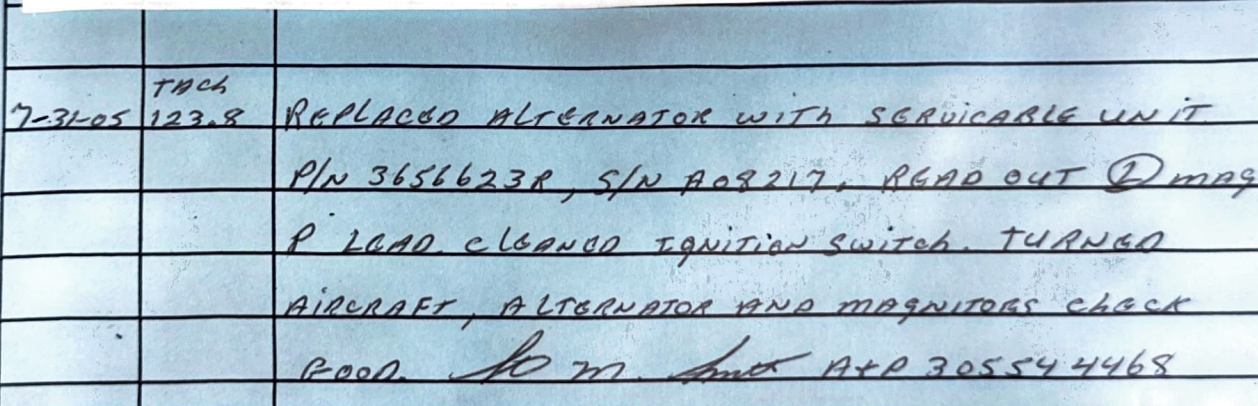 TACh
7-31-05 123.8 REPLACED ALTERNATOR WITh SERVICABLE UNIT
P/N 3656623R, S/N A08217. READ OUT MAG
P LEAD. CLEANED IGNITION SWITCH. TURNED
AIRCRAFT, ALTERNATOR AND MAGNITORS CHECK
GOOD. M. A+P 305544468